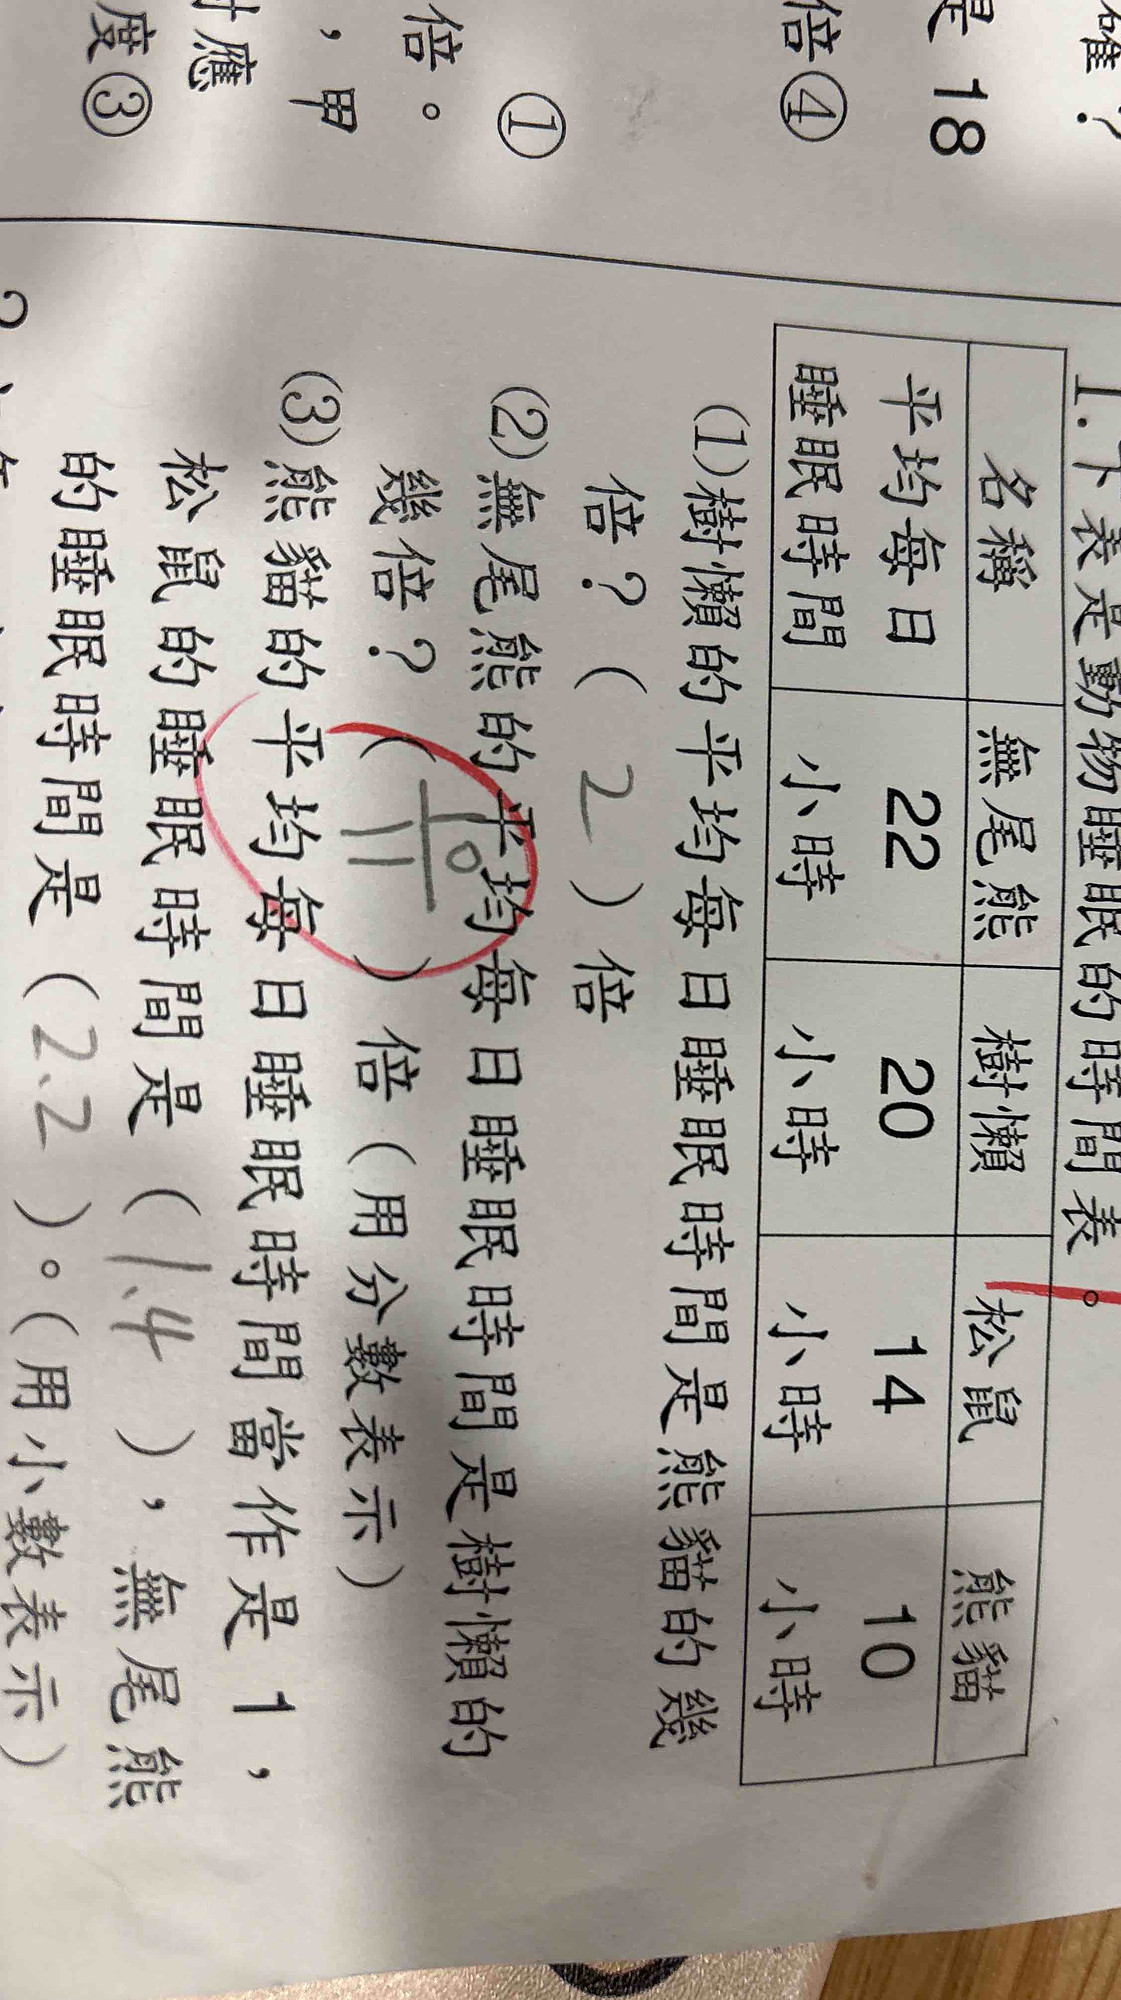 確？
是 18
倍④
①
倍。
，甲
對應
度③
1.下表是動物睡眠的時間表。
名稱 無尾熊 樹懶 松鼠 熊貓
平均每日睡眠時間 22小時 20小時 14小時 10小時
(1)樹懶的平均每日睡眠時間是熊貓的幾
倍？（ 2 ）倍
(2)無尾熊的平均每日睡眠時間是樹懶的
幾倍？（ 10/11 ）倍（用分數表示）
(3)熊貓的平均每日睡眠時間當作是 1，
松鼠的睡眠時間是（ 1.4 ），無尾熊
的睡眠時間是（ 2.2 ）。（用小數表示）
2